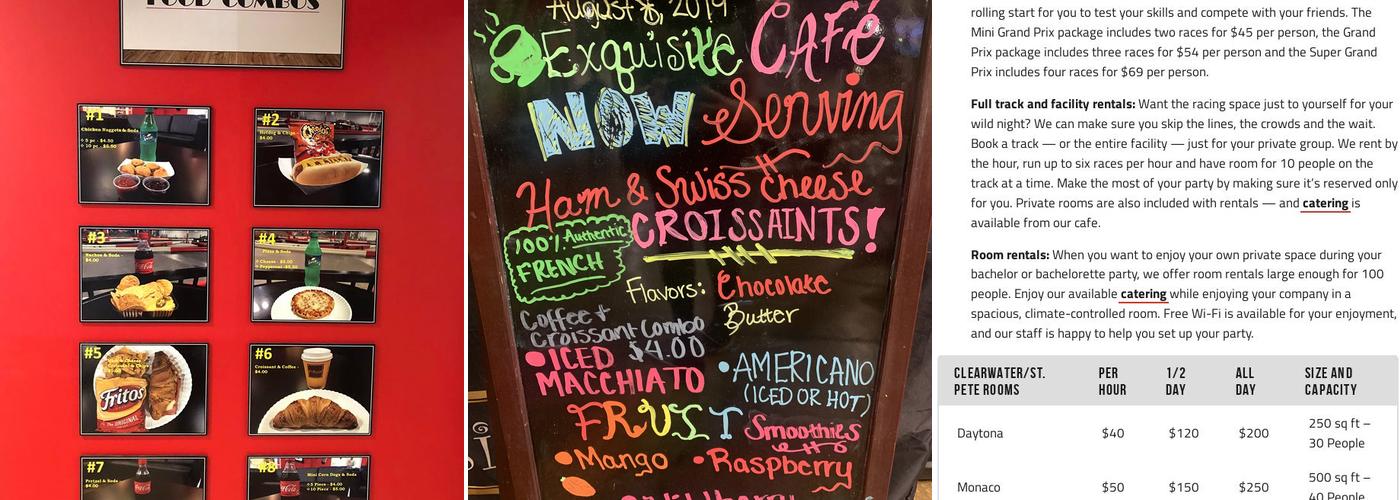 FOOD COMBOS
#1
Chicken Nuggets & Soda
5 pc - $4.50
10 pc -
#2
Hotdog & Chips
$4.00
#3
Nachos & Soda
$4.00
#4
Pizza & Soda
Cheese - $5.00
Pepperoni
#5
Fritos
The ORIGINAL
#6
Croissant & Coffee -
$4.00
#7
Pretzel & Soda
$4.00
#8
Mini Corn Dogs & Soda
5 Piece - $4.00
10 Piece - $5.00
August 8, 2019
Exquisite CAFé
NOW Serving
Ham & Swiss cheese
CROISSAINTS!
100% Authentic
FRENCH
Flavors: Chocolate
Butter
Coffee +
Croissant Combo
$4.00
ICED
MACCHIATO
AMERICANO
(ICED OR HOT)
FRUIT Smoothies
Mango
Raspberry
rolling start for you to test your skills and compete with your friends. The
Mini Grand Prix package includes two races for $45 per person, the Grand
Prix package includes three races for $54 per person and the Super Grand
Prix includes four races for $69 per person.
Full track and facility rentals: Want the racing space just to yourself for your
wild night? We can make sure you skip the lines, the crowds and the wait.
Book a track — or the entire facility — just for your private group. We rent by
the hour, run up to six races per hour and have room for 10 people on the
track at a time. Make the most of your party by making sure it's reserved only
for you. Private rooms are also included with rentals — and catering is
available from our cafe.
Room rentals: When you want to enjoy your own private space during your
bachelor or bachelorette party, we offer room rentals large enough for 100
people. Enjoy our available catering while enjoying your company in a
spacious, climate-controlled room. Free Wi-Fi is available for your enjoyment,
and our staff is happy to help you set up your party.
CLEARWATER/ST. PETE ROOMS PER HOUR 1/2 DAY ALL DAY SIZE AND CAPACITY
Daytona $40 $120 $200 250 sq ft – 30 People
Monaco $50 $150 $250 500 sq ft – 40 People